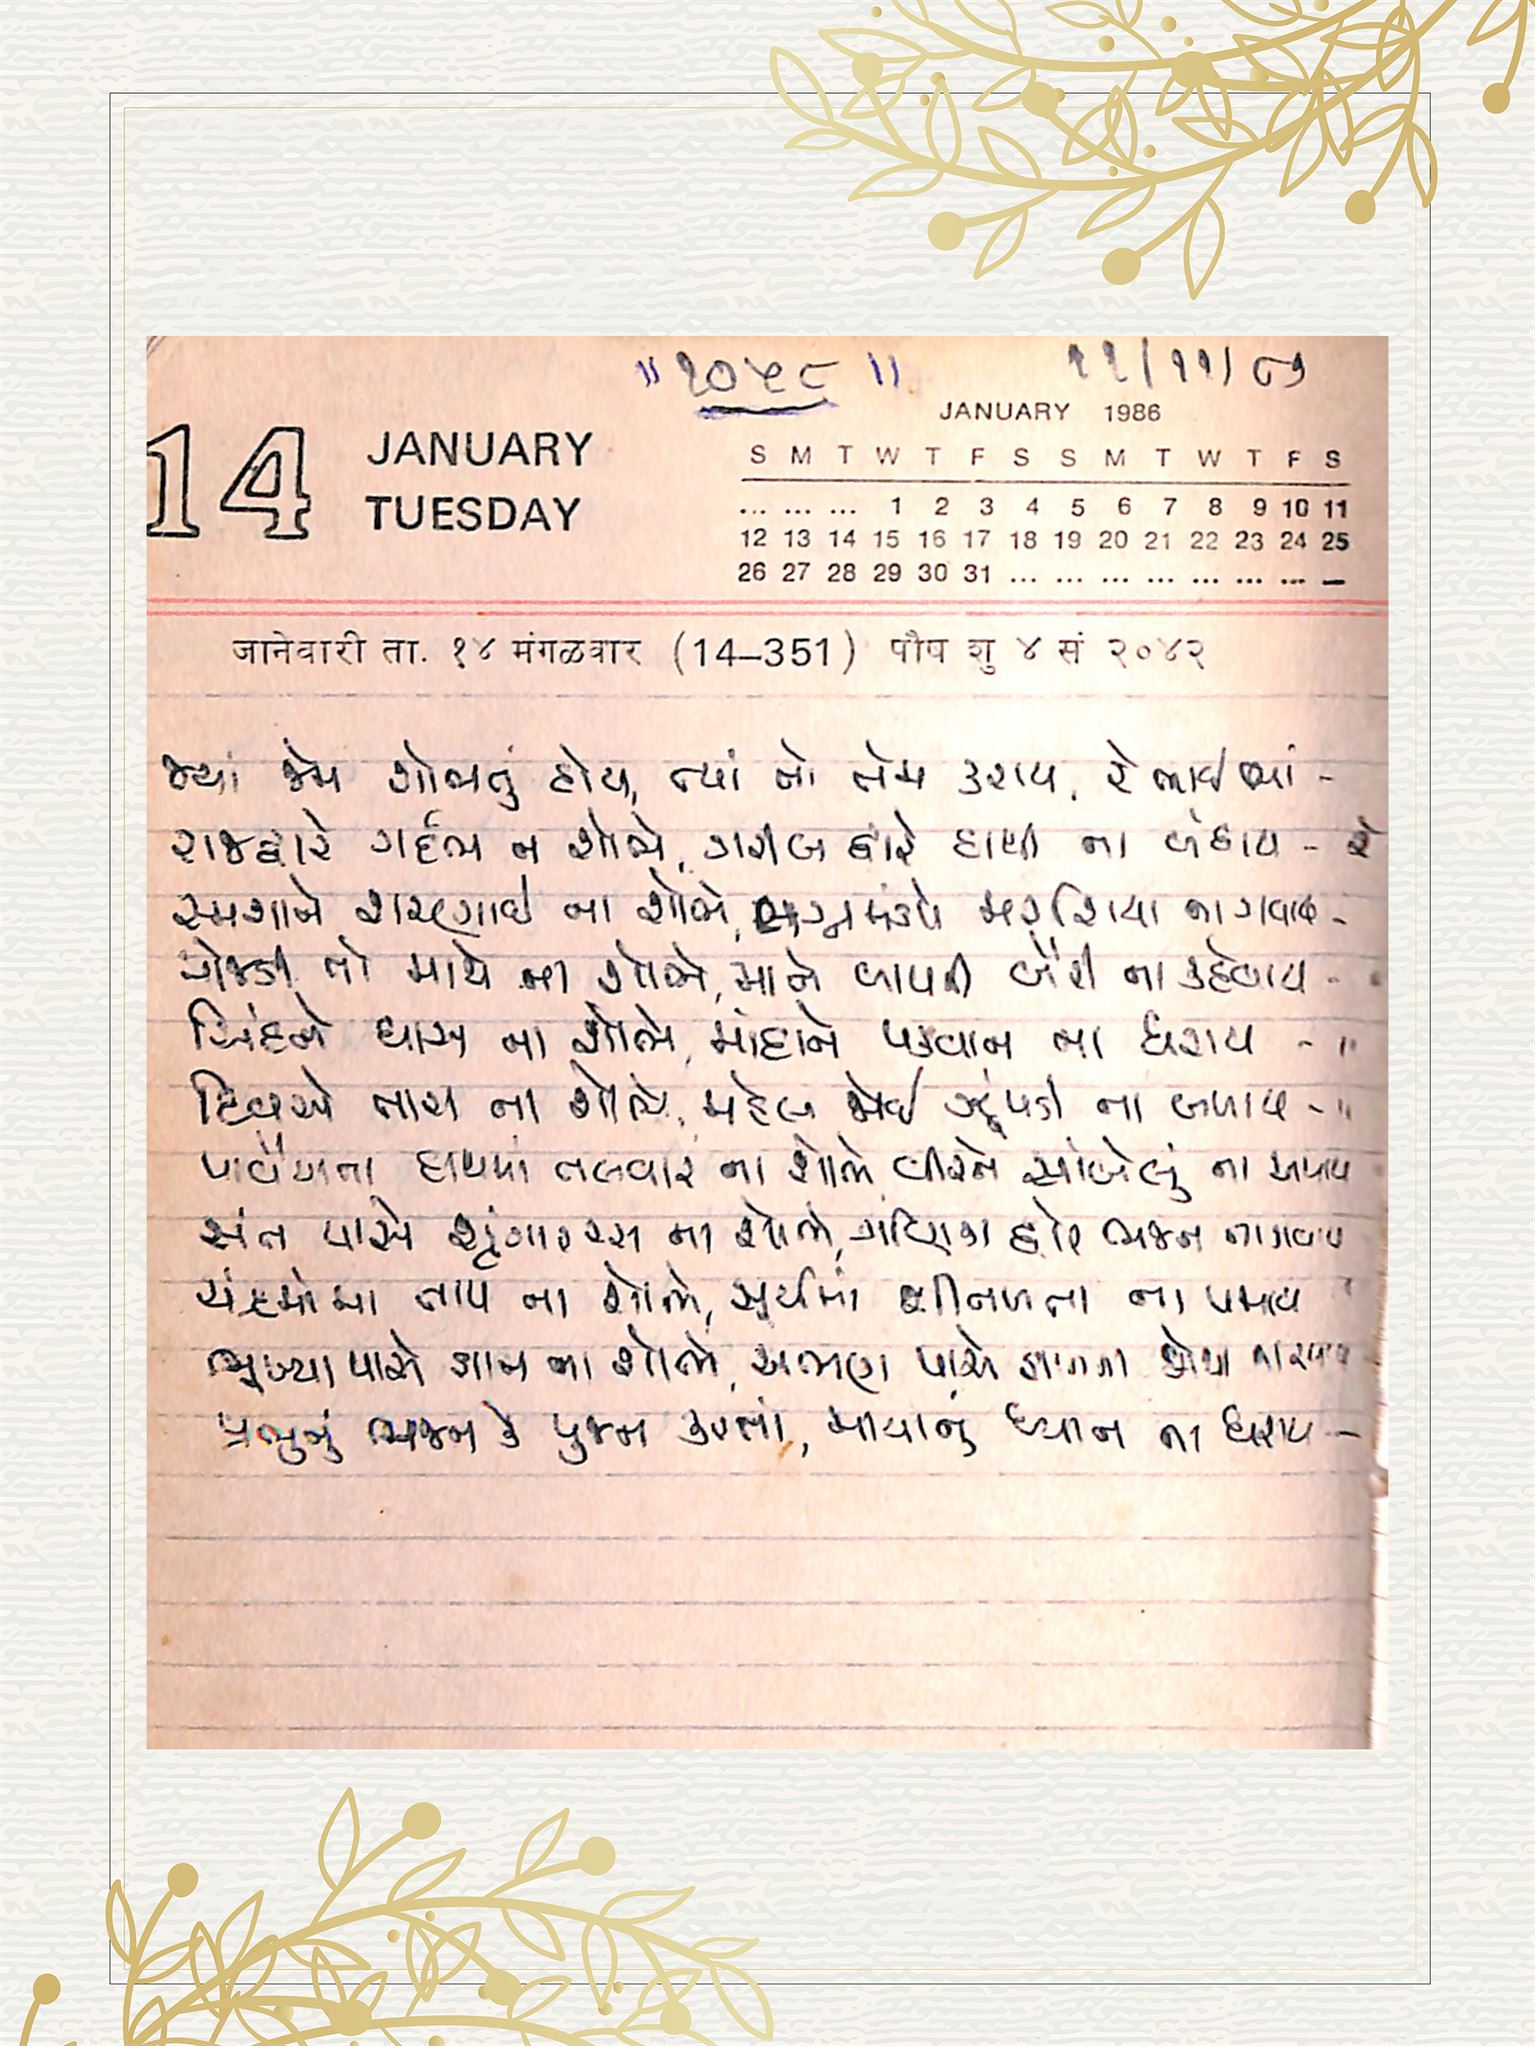 "૨૦૫૮" ૧૧/૧૧/૮૭
JANUARY 1986
14 JANUARY
TUESDAY
S M T W T F S S M T W T F S
... ... ... 1 2 3 4 5 6 7 8 9 10 11
12 13 14 15 16 17 18 19 20 21 22 23 24 25
26 27 28 29 30 31 ... ... ... ... ... ... ... ...
जानेवारी ता. १४ मंगळवार (14–351) पौष शु ४ सं २०४२
જ્યાં જેમ શોભતું હોય, ત્યાં તો તેમ કરાય. રે ભાઈ જ્યાં -
રાજદ્વારે ગર્દભ ન શોભે, ગરીબ દ્વારે હાથી ના બંધાય - રે
સ્મશાને શરણાઈ ના શોભે, લગ્નમંડપે મરશિયા ના ગવાય -
મોજડી તો માથે ના શોભે, માને બાપની બૈરી ના કહેવાય -
સિંહને ઘાસ ના શોભે, માંદાને પકવાન ના ધરાય - "
દિવસે તારા ના શોભે, મહેલ જોઈ ઝુંપડી ના બળાય - "
પાવૈયાના હાથમાં તલવાર ના શોભે વીરને સાંબેલું ના અપાય
સંત પાસે શૃંગારરસ ના શોભે, ગણિકા દ્વારે ભજન ના ગવાય
ચંદ્રમામાં તાપ ના શોભે, સૂર્યમાં શીતળતા ના પમાય "
ભૂખ્યા પાસે જ્ઞાન ના શોભે, અભણ પાસે કાગળ
પ્રભુનું ભજન કે પુજન કરતાં, માયાનું ધ્યાન ના ધરાય -